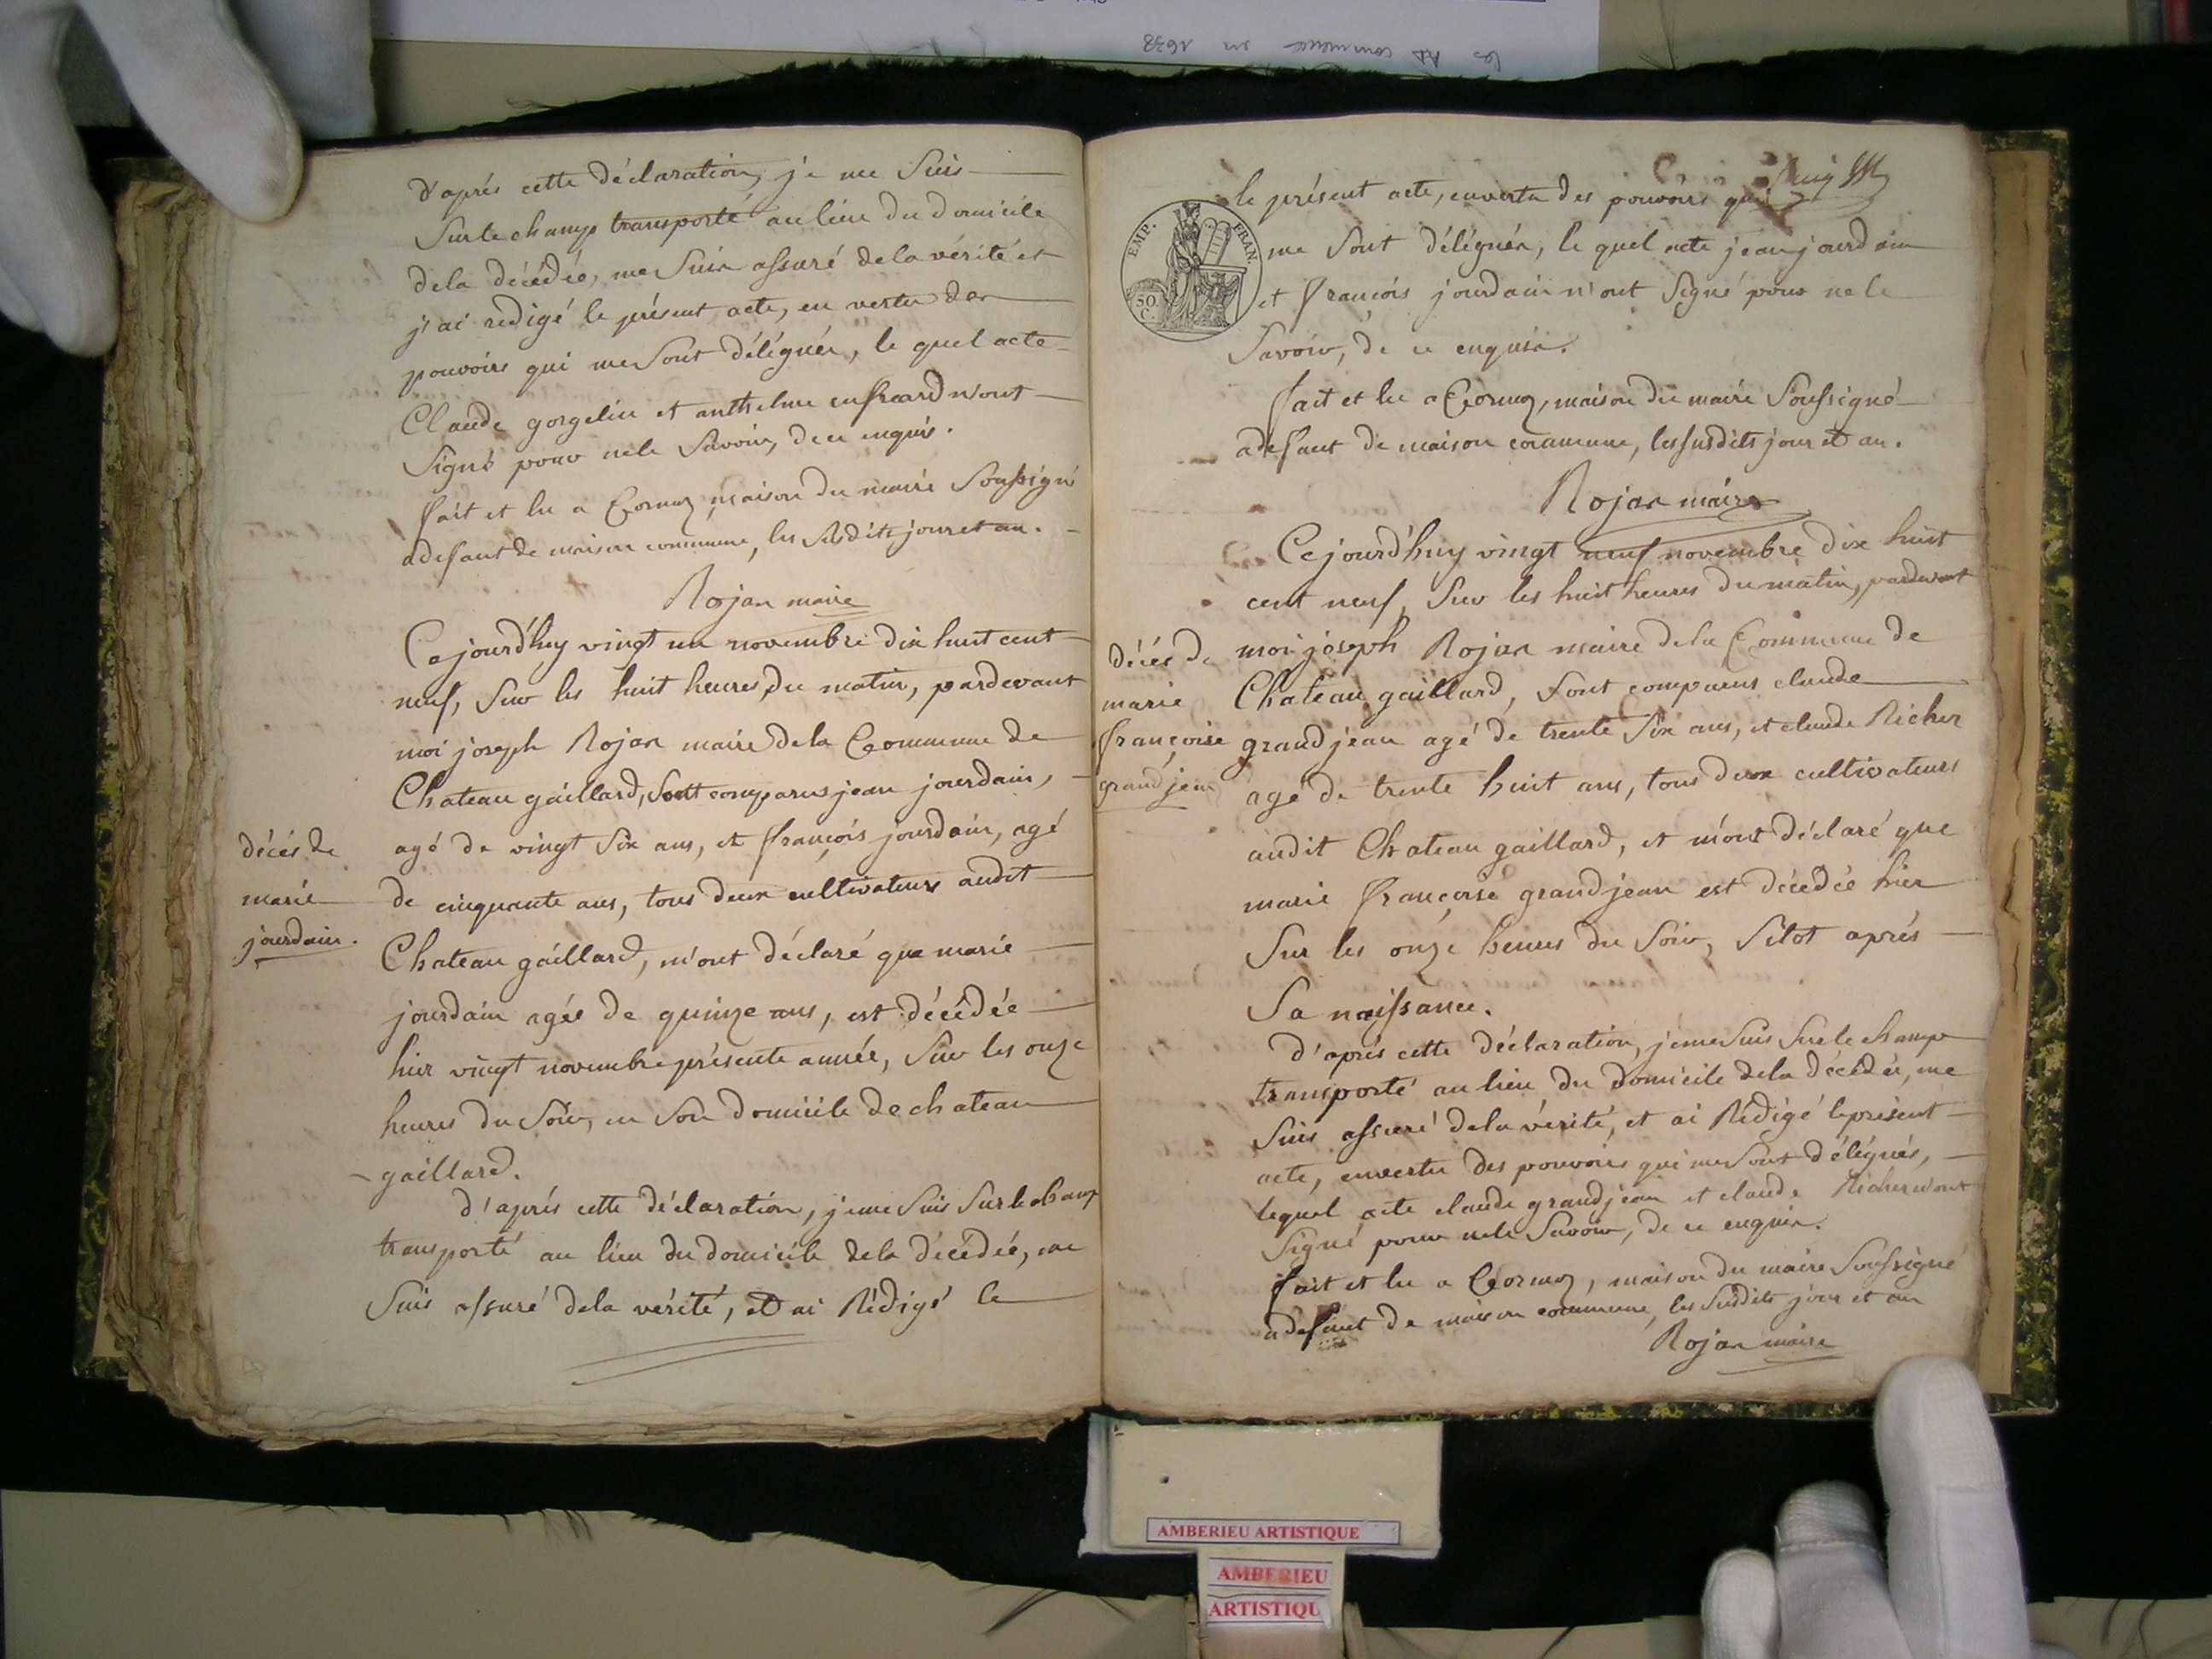 les AD commence en 1638
d'aprés cette déclaration, je me suis
sur le champ transporté au lieu du domicile
de la décédée, me suis assuré de la vérité et
j'ai redigé le présent acte, en vertu des
pouvoirs qui me sont délégués, le quel acte
Claude gorgelin et anthelme enfreard n'ont
signé pour ne le savoir, de ce enquis.
fait et lu a Cormoz, maison du maire soussigné
a defaut de maison commune, les susdits jour et an.
Rojas maire
Ce jourd'huy vingt un novembre dix huit cent
neuf, sur les huit heures du matin, pardevant
moi joseph Rojas maire de la Commune de
Chateau gaillard, sont comparus jean jourdain,
agé de vingt six ans, et françois jourdain, agé
décés de
marie
jourdain.
de cinquante ans, tous deux cultivateurs audit
Chateau gaillard, m'ont déclaré que marie
jourdain agée de quinze ans, est décédée
hier vingt novembre présente année, sur les onze
heures du soir, en son domicile de chateau
gaillard.
d'aprés cette déclaration, je me suis sur le champ
transporté au lieu du domicile de la décédée, me
suis assuré de la vérité, et ai Rédigé le
le présent acte, en vertu des pouvoirs qui
EMP. FRAN.
50 C.
me sont délégués, le quel acte jean jourdain
et françois jourdain n'ont signé pour ne le
savoir, de ce enquis.
fait et lu a Cormoz, maison du maire soussigné
a defaut de maison commune, les susdits jour et an.
Rojas maire
Ce jourd'huy vingt neuf novembre dix huit
cent neuf, sur les huit heures du matin, pardevant
moi joseph Rojas maire de la Commune de
décés de
marie
françoise
grandjean
Chateau gaillard, sont comparus claude
grandjean agé de trente six ans, et claude Richer
agé de trente huit ans, tous deux cultivateurs
audit Chateau gaillard, et m'ont déclaré que
marie françoise grandjean est décédée hier
sur les onze heures du soir, sitot aprés
sa naissance.
d'aprés cette déclaration, je me suis sur le champ
transporté au lieu du domicile de la décédée, me
suis assuré de la vérité, et ai Rédigé le présent
acte, en vertu des pouvoirs qui me sont délégués,
lequel acte claude grandjean et claude Richer n'ont
signé pour ne le savoir, de ce enquis.
fait et lu a Cormoz, maison du maire soussigné
a defaut de maison commune, les susdits jour et an
Rojas maire
AMBERIEU ARTISTIQUE
AMBERIEU
ARTISTIQU